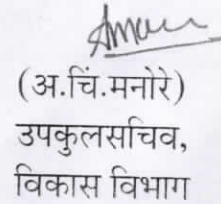 (अ.चिं.मनोरे)
उपकुलसचिव,
विकास विभाग